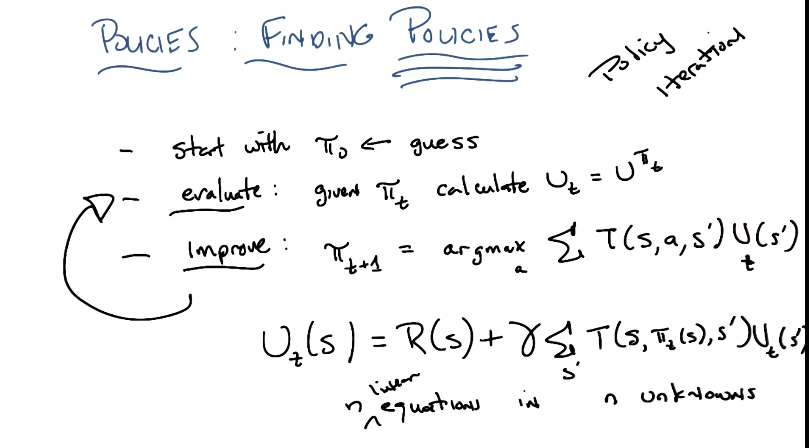 POLICIES : FINDING POLICIES
Policy Iteration!
- start with π₀ ← guess
- evaluate : given π_t calculate U_t = U^π_t
- Improve : π_t+1 = argmax_a Σ T(s,a,s') U_t(s')
U_t(s) = R(s) + γ Σ_s' T(s,π_t(s),s')U_t(s')
n linear equations in n unknowns